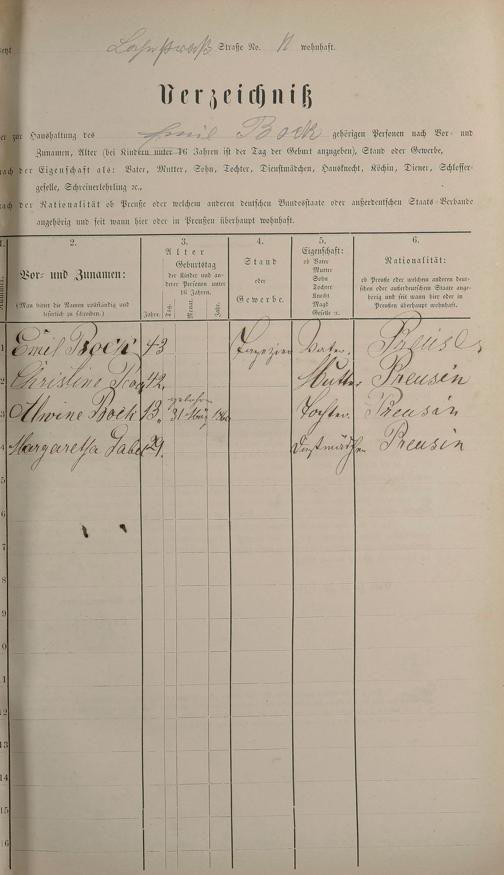 Straße No. 11 wohnhaft.
Verzeichniß
zur Haushaltung des Emil Bock gehörigen Personen nach Vor- und
Zunamen, Alter (bei Kindern unter 16 Jahren ist der Tag der Geburt anzugeben), Stand oder Gewerbe,
nach der Eigenschaft als: Vater, Mutter, Sohn, Tochter, Dienstmädchen, Hausknecht, Köchin, Diener, Schlosser-
geselle, Schreinerlehrling ꝛc.,
nach der Nationalität ob Preuße oder welchem anderen deutschen Bundesstaate oder außerdeutschen Staats-Verbande
angehörig und seit wann hier oder in Preußen überhaupt wohnhaft.
1.
2.
Vor- und Zunamen:
(Man bittet die Namen vollständig und
leserlich zu schreiben.)
3.
Alter
Jahre.
Geburtstag
der Kinder und an-
derer Personen unter
16 Jahren.
Tag.
Monat.
Jahr.
4.
Stand
oder
Gewerbe.
5.
Eigenschaft:
ob Vater
Mutter
Sohn
Tochter
Knecht
Magd
Geselle ꝛc.
6.
Nationalität:
ob Preuße oder welchem anderen deut-
schen oder außerdeutschen Staate ange-
hörig und seit wann hier oder in
Preußen überhaupt wohnhaft.
1 Emil Bock 43 Tapezier Vater. Preuse
2 Christine Bock 42. Mutter Preusin
geboren
3 Alwine Bock 13. 31 März Tochter Preusin
4 Margaretha 29. Dienstmädchen Preusin
5
6
7
8
9
0
11
12
13
14
15
16